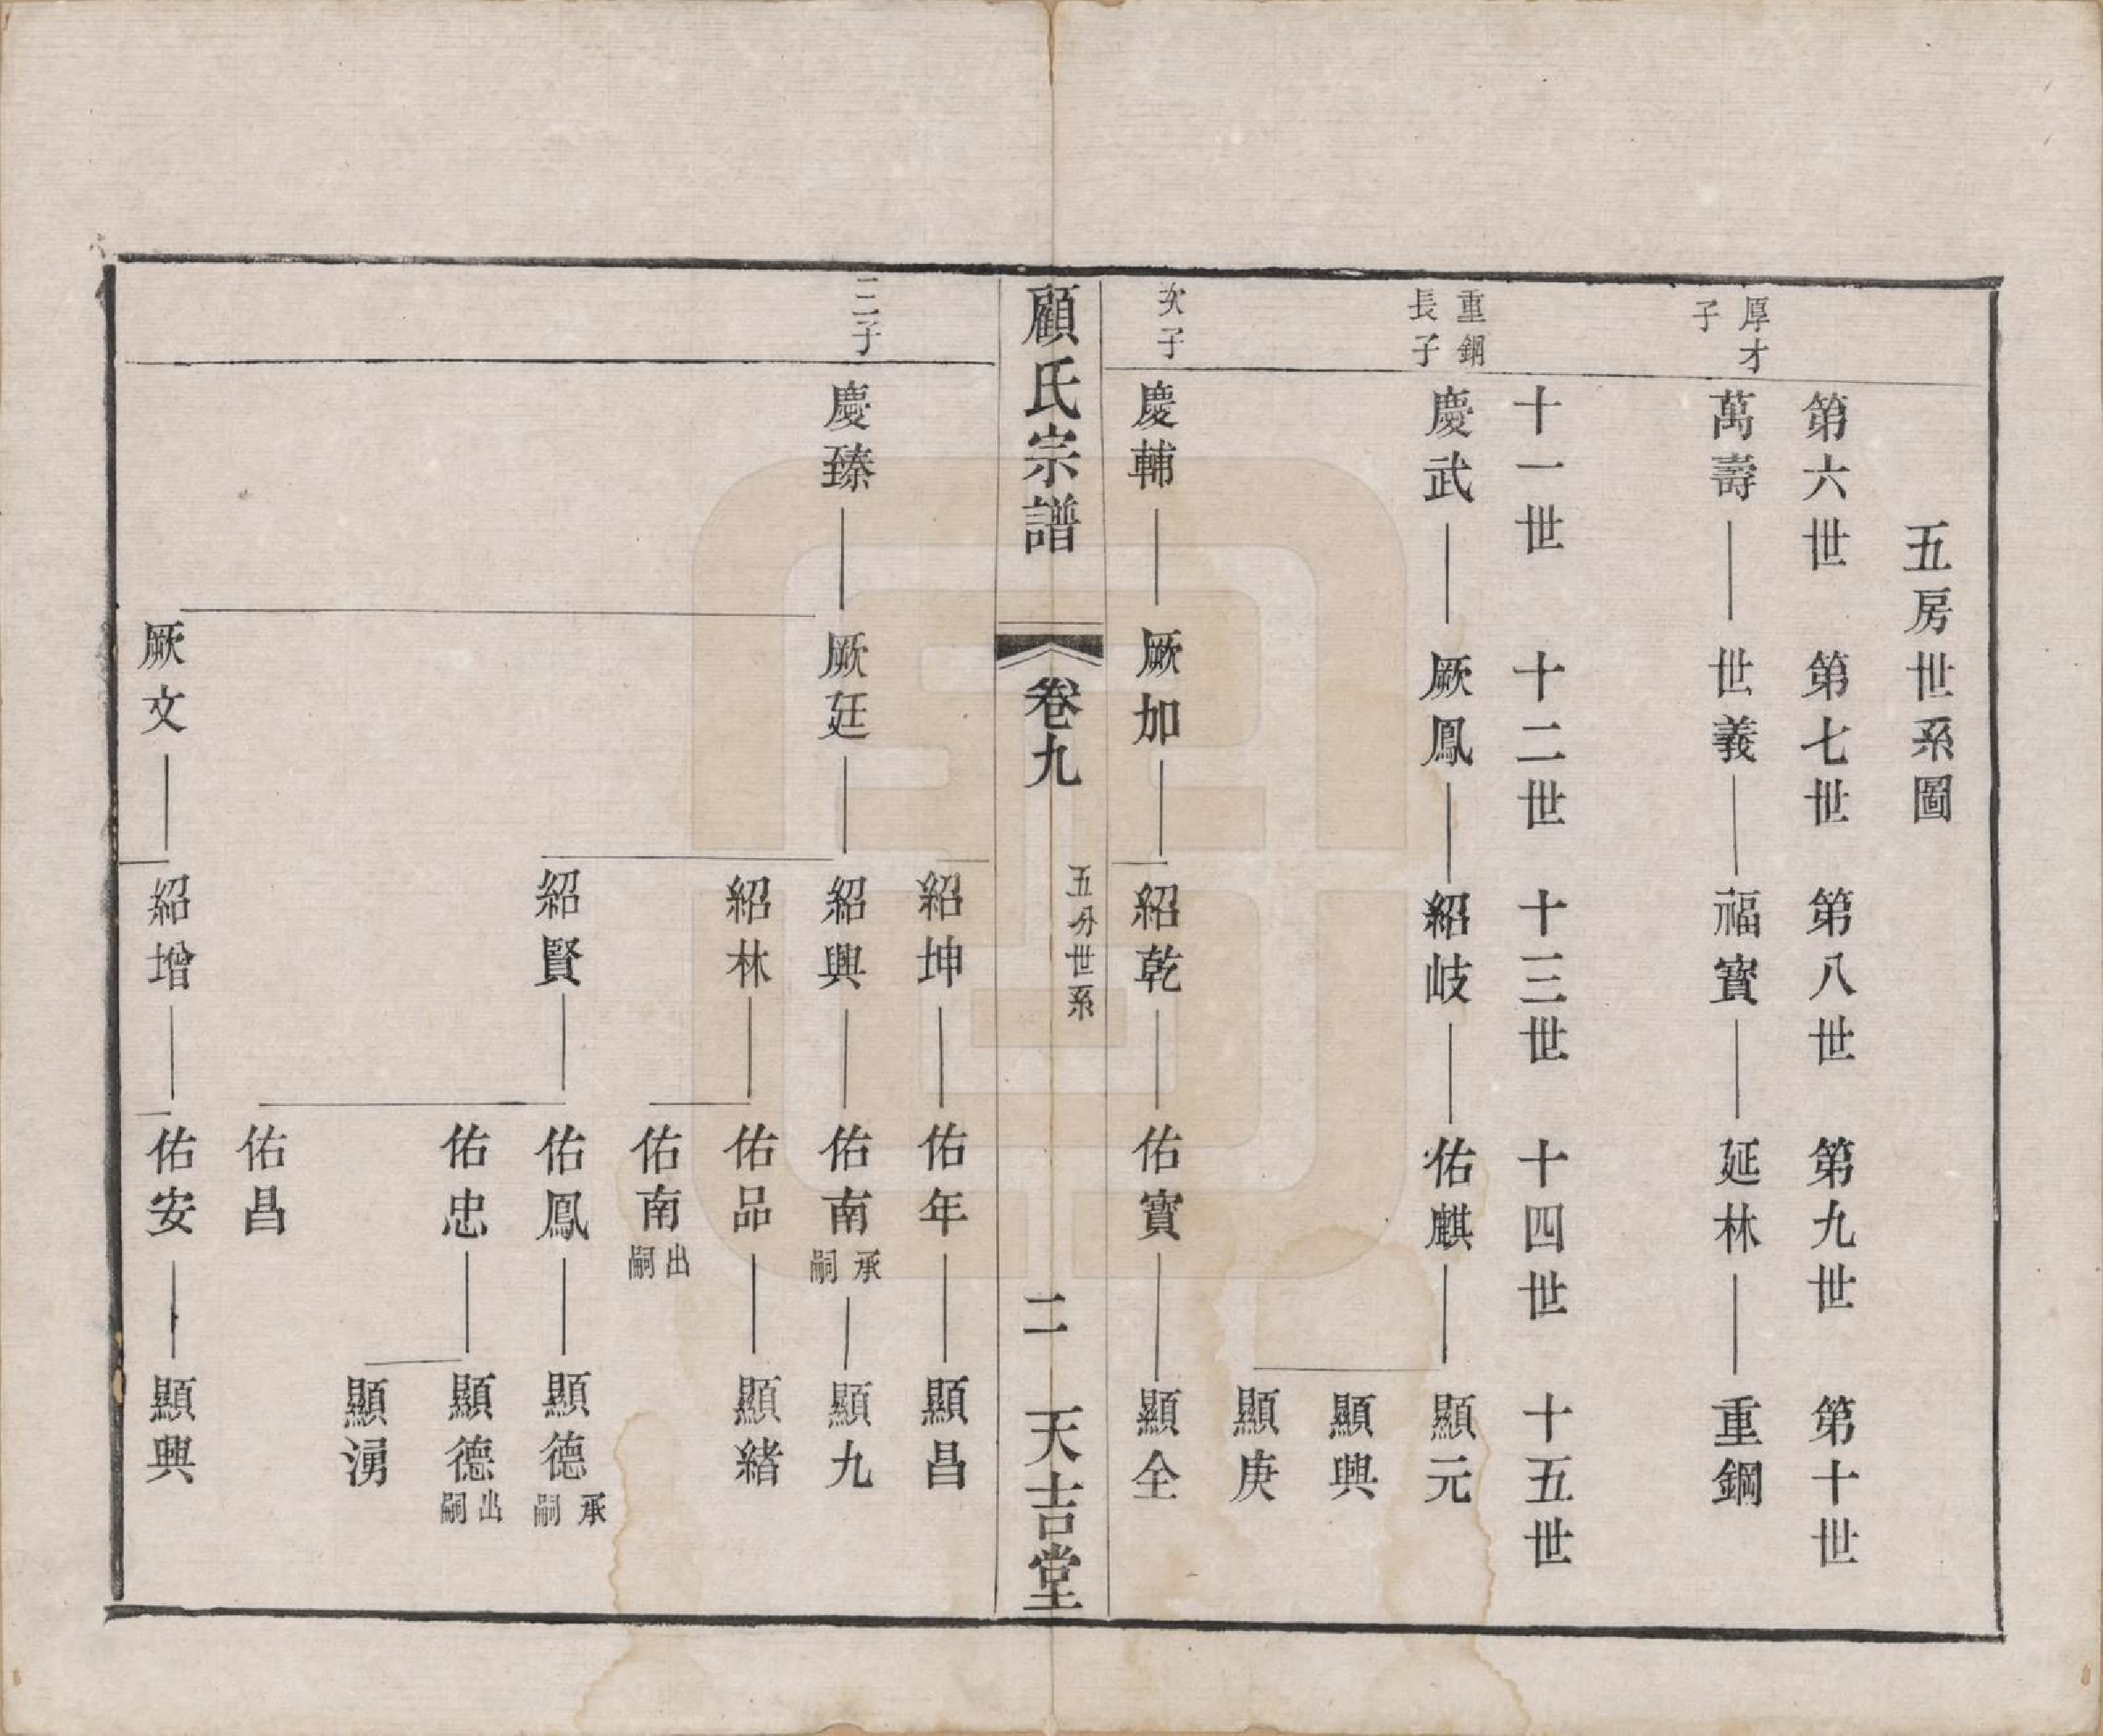 五房世系圖
第六世 第七世 第八世 第九世 第十世
厚才子
萬壽 世義 福寶 延林 重鋼
十一世 十二世 十三世 十四世 十五世
重鋼長子
慶武 厥鳳 紹岐 佑麒 顯元
顯興
顯庚
次子
慶輔 厥加 紹乾 佑寶 顯全
顧氏宗譜 卷九 五房世系 二 天吉堂
紹坤 佑年 顯昌
三子
慶臻 厥廷 紹興 佑南 承嗣 顯九
紹林 佑品 顯緒
佑南 出嗣
紹賢 佑鳳 顯德 承嗣
佑忠 顯德 出嗣
顯湧
佑昌
厥文 紹增 佑安 顯興